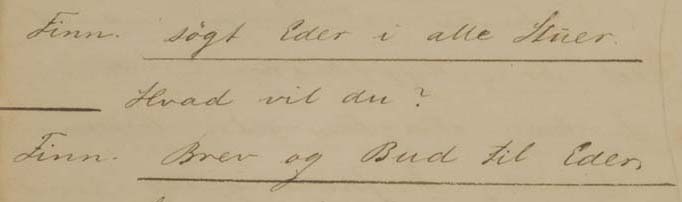 Finn. søgt Eder i alle Stuer.
Hvad vil du?
Finn. Brev og Bud til Eder.